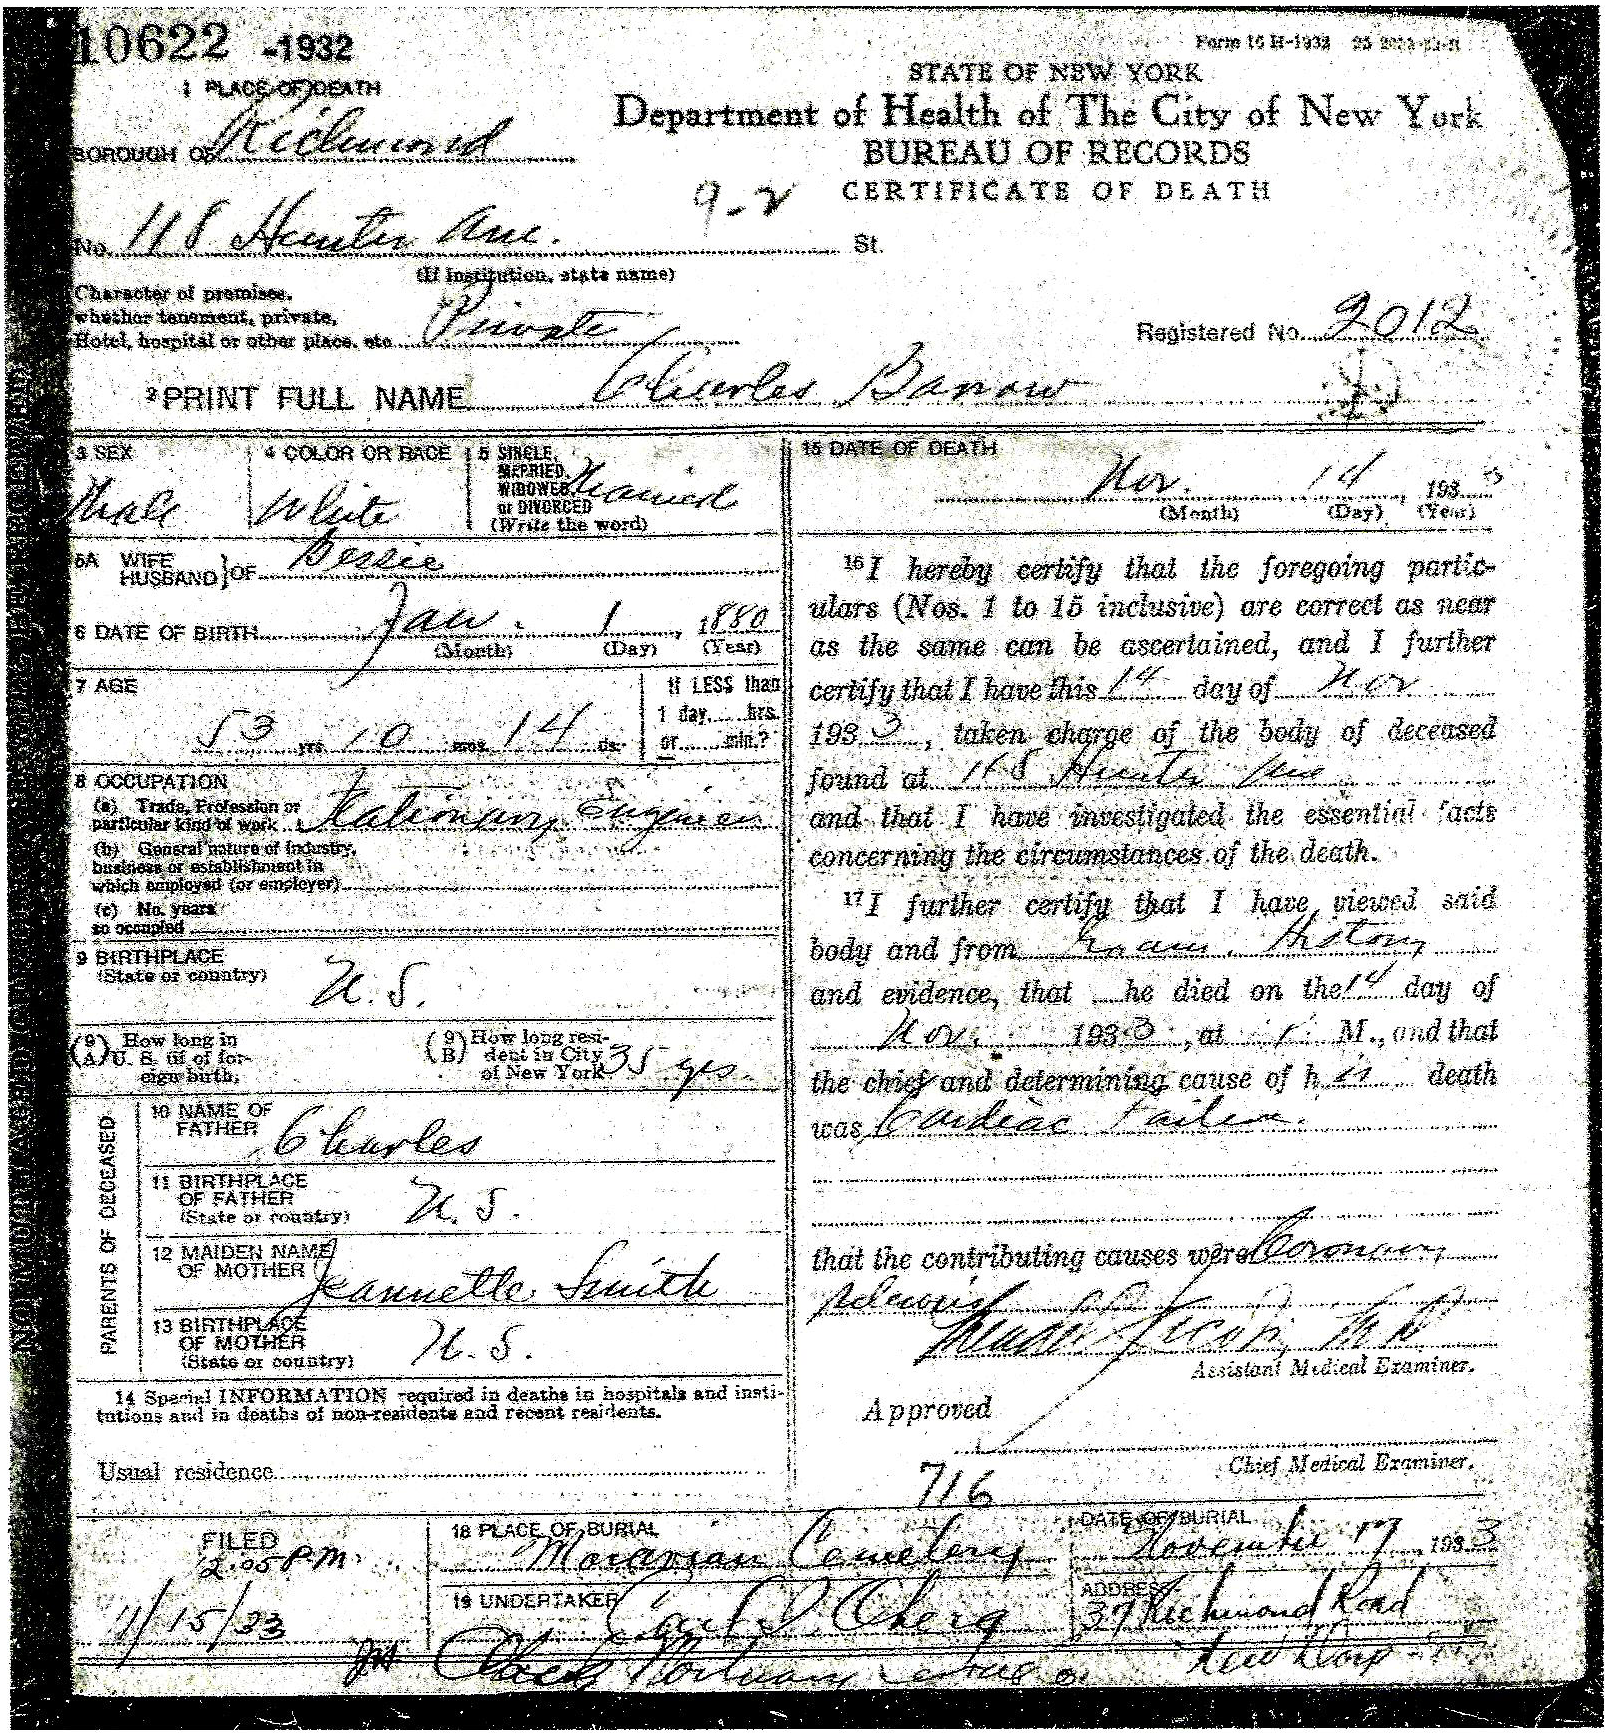 10622 -1932
Form 16 H-1932
1 PLACE OF DEATH
STATE OF NEW YORK
Department of Health of The City of New York
BUREAU OF RECORDS
CERTIFICATE OF DEATH
BOROUGH OF Richmond
9-2
No. 118 Hunter Ave. St.
(If institution, state name)
Character of premises,
whether tenement, private,
Hotel, hospital or other place, etc Private
Registered No. 2012
2 PRINT FULL NAME Charles Barrow
3 SEX Male
4 COLOR OR RACE White
5 SINGLE,
MARRIED,
WIDOWED,
or DIVORCED
(Write the word) Married
5A WIFE
HUSBAND } OF Bessie
6 DATE OF BIRTH Jan. 1, 1880
(Month) (Day) (Year)
7 AGE
53 yrs. 10 mos. 14 ds.
If LESS than
1 day, hrs.
or min.?
8 OCCUPATION
(a) Trade, Profession or
particular kind of work Stationary Engineer
(b) General nature of industry,
business or establishment in
which employed (or employer)
(c) No. years
so occupied
9 BIRTHPLACE
(State or country) U.S.
(9A) How long in
U. S. (if of for-
eign birth.
(9B) How long resi-
dent in City
of New York 35 yrs.
PARENTS OF DECEASED
10 NAME OF
FATHER Charles
11 BIRTHPLACE
OF FATHER
(State or country) U.S.
12 MAIDEN NAME
OF MOTHER Jeannette Smith
13 BIRTHPLACE
OF MOTHER
(State or country) U.S.
14 Special INFORMATION required in deaths in hospitals and insti-
tutions and in deaths of non-residents and recent residents.
Usual residence
15 DATE OF DEATH
Nov. 14, 1933
(Month) (Day) (Year)
16 I hereby certify that the foregoing partic-
ulars (Nos. 1 to 15 inclusive) are correct as near
as the same can be ascertained, and I further
certify that I have this 14 day of Nov
1933, taken charge of the body of deceased
found at 118 Hunter Ave
and that I have investigated the essential facts
concerning the circumstances of the death.
17 I further certify that I have viewed said
body and from Exam. History
and evidence, that he died on the 14 day of
Nov. 1933, at M., and that
the chief and determining cause of his death
was Cardiac Failure.
that the contributing causes were Coronary
sclerosis
M.D.
Assistant Medical Examiner.
Approved
Chief Medical Examiner.
716
FILED
12:05 P.M.
11/15/33
18 PLACE OF BURIAL
Moravian Cemetery
DATE OF BURIAL
November 17, 1933
19 UNDERTAKER
Carl Oberg
ADDRESS
37 Richmond Road
New Dorp S.I.